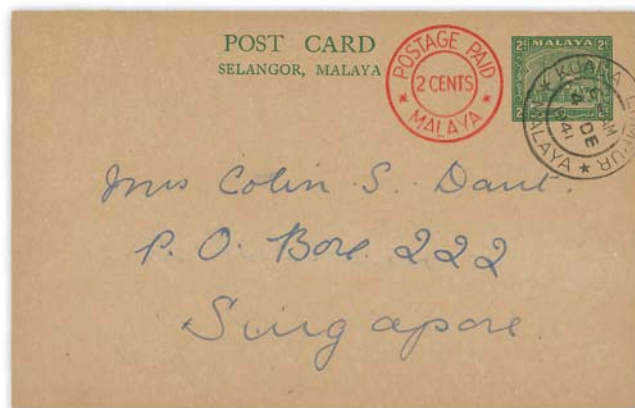 POST CARD
SELANGOR, MALAYA
POSTAGE PAID
2 CENTS
MALAYA
2c MALAYA 2c
KUALA LUMPUR
AM
4 DE
1941
MALAYA
Mrs Colin S. Daut.
P. O. Box. 222
Singapore.